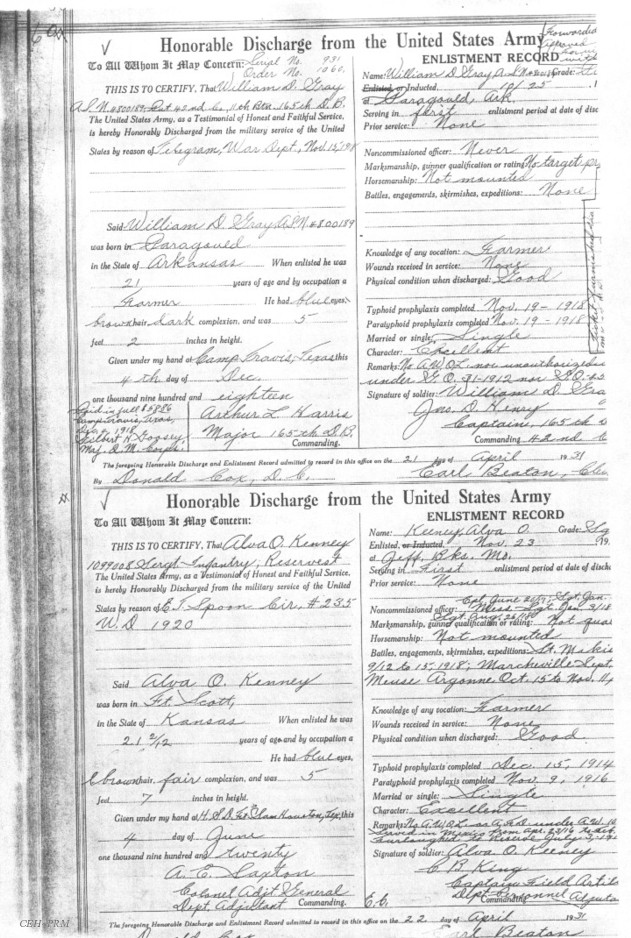 Honorable Discharge from the United States Army
To All Whom It May Concern: Serial No. 931
Order No. 1060
THIS IS TO CERTIFY, That William D. Gray
A.S.N #800189 Pvt 42nd Co., 11th Btn. 165th D.B.
The United States Army, as a Testimonial of Honest and Faithful Service,
is hereby Honorably Discharged from the military service of the United
States by reason of Telegram, War Dept., Nov. 15, 1918
Said William D. Gray A.S.N #800189
was born in Paragould
in the State of Arkansas When enlisted he was
21 years of age and by occupation a
Farmer He had blue eyes,
brown hair, dark complexion, and was 5
feet 2 inches in height.
Given under my hand at Camp Travis, Texas this
4th day of Dec.
one thousand nine hundred and eighteen
Paid in full $58.86
Camp Travis, Texas,
1918
Maj. Q.M. Corps.
Arthur L. Harris
Major 165th D.B.
Commanding.
ENLISTMENT RECORD
Forwarded
Name: William D. Gray A.S.N #800189 Grade:
Enlisted, or Inducted, 10/25
at Paragould, Ark.
Serving in first enlistment period at date of disc
Prior service: None
Noncommissioned officer: Never
Marksmanship, gunner qualification or rating: No target pr
Horsemanship: Not mounted
Battles, engagements, skirmishes, expeditions: None
Knowledge of any vocation: Farmer
Wounds received in service: None
Physical condition when discharged: Good
Typhoid prophylaxis completed Nov. 19 - 1918
Paratyphoid prophylaxis completed Nov. 19 - 1918
Married or single: Single
Character: Excellent
Remarks: No A.W.O.L. nor unauthorized
under G.O. 31-1912 nor G.O. 45
Signature of soldier: William D. Gra
Jno. D. Keney
Captain, 165th D
Commanding 42nd C
The foregoing Honorable Discharge and Enlistment Record admitted to record in this office on the 21 day of April 1931
By Donald Cox, D.C. Earl Beaton, Cler
Honorable Discharge from the United States Army
To All Whom It May Concern:
THIS IS TO CERTIFY, That Alva O. Kenney
1099008 Sergt. Infantry, Reservest
The United States Army, as a Testimonial of Honest and Faithful Service,
is hereby Honorably Discharged from the military service of the United
States by reason of E.T.S. Cir. #235
W.D. 1920
Said Alva O. Kenney
was born in Ft. Scott,
in the State of Kansas When enlisted he was
21 2/12 years of age and by occupation a
He had blue eyes,
brown hair, fair complexion, and was 5
feet 7 inches in height.
Given under my hand at H.S.D. Ft. Sam Houston, Tex. this
4 day of June
one thousand nine hundred and twenty
A. C. Saxton
Colonel Adjt General
Dept. Adjutant Commanding
ENLISTMENT RECORD
Name: Keeney, Alva O Grade: Sg
Enlisted, or Inducted, Nov. 23 19
at Jeff. Bks. Mo.
Serving in First enlistment period at date of disch
Prior service: None
Cpl. June 21/17; Sgt. Jan.
Noncommissioned officer: Mess Sgt. Jan 3/18
Sgt. Aug. 26/18
Marksmanship, gunner qualification or rating: Not qua
Horsemanship: Not mounted
Battles, engagements, skirmishes, expeditions: St. Mihie
9/12 to 15, 1918; Marcheville Sept.
Meuse Argonne Oct. 15 to Nov. 11,
Knowledge of any vocation: Farmer
Wounds received in service: None
Physical condition when discharged: Good
Typhoid prophylaxis completed Dec. 15, 1914
Paratyphoid prophylaxis completed Nov. 9, 1916
Married or single: Single
Character: Excellent
Remarks: No A.W.O.L. or under A.W. 10
Served in Mexico from Apr. 23/16 to
Furloughed to Reserve July
Signature of soldier: Alva O. Keeney
C. B. King
Captain Field Artil
Dept. Personnel Adjuta
E.C.
The foregoing Honorable Discharge and Enlistment Record admitted to record in this office on the 22 day of April 1931
Donald Cox Earl Beaton
CEH-PRM